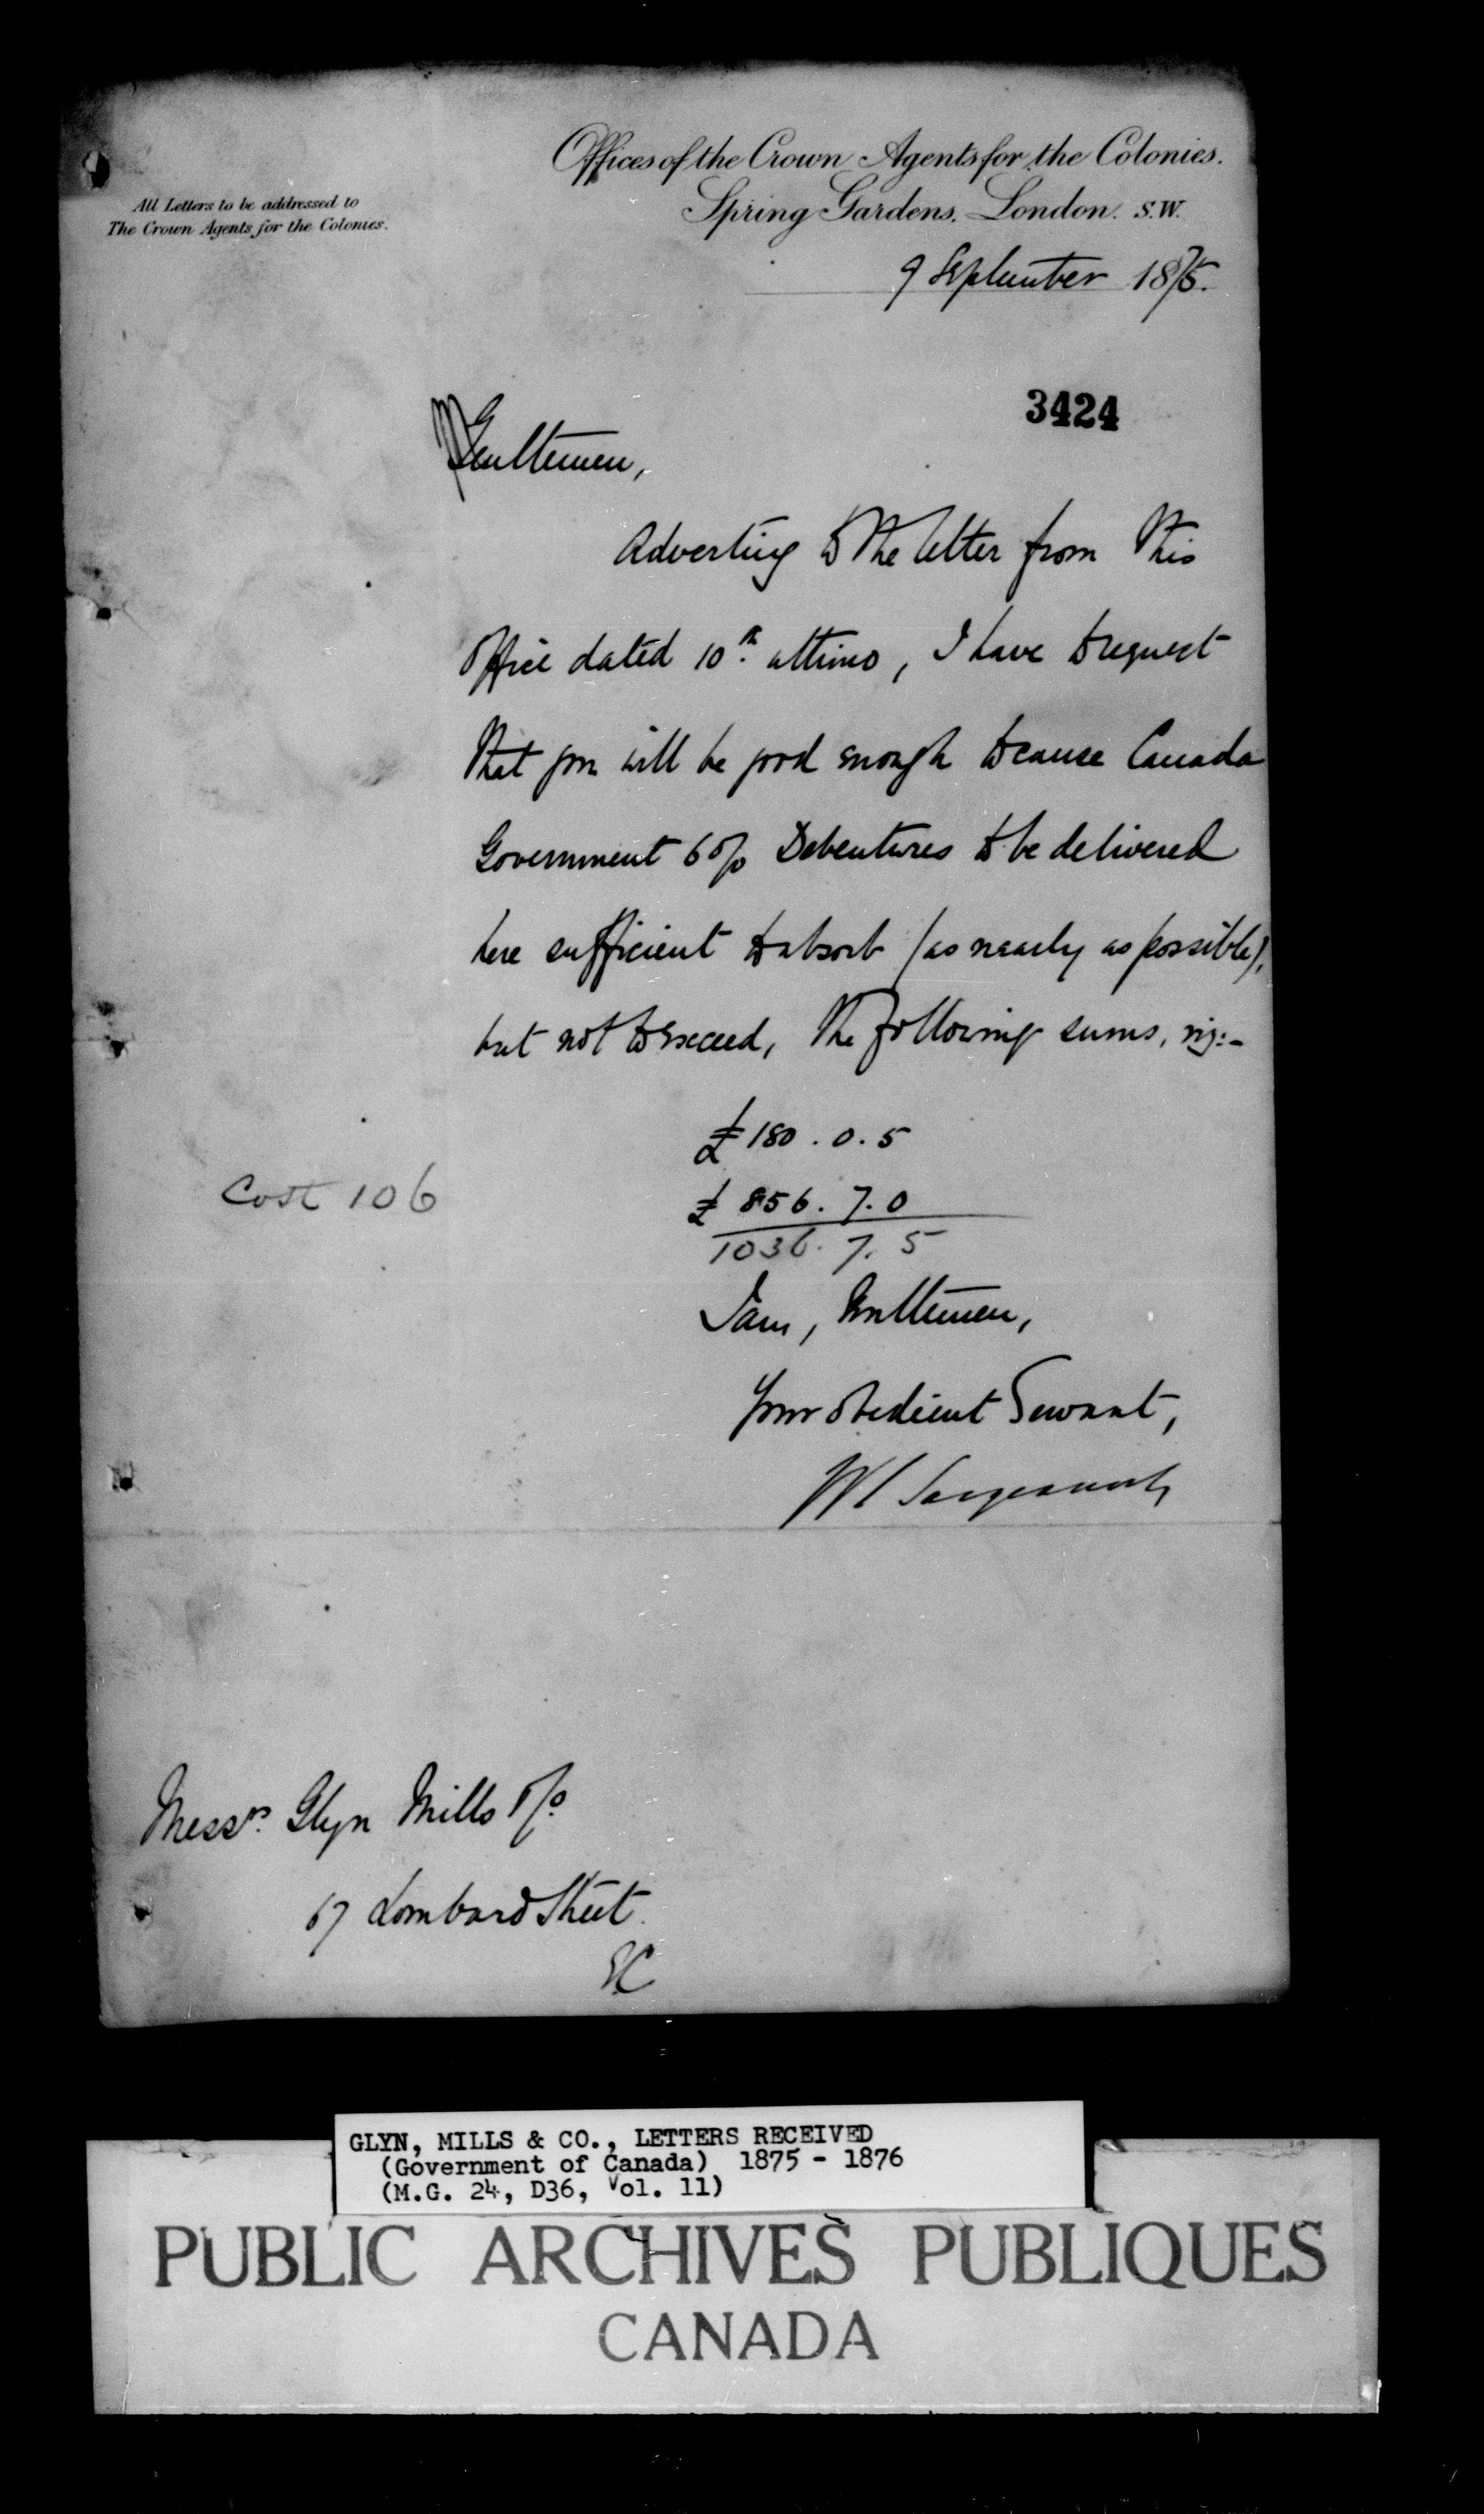 Offices of the Crown Agents for the Colonies.
Spring Gardens, London. S.W.
All Letters to be addressed to
The Crown Agents for the Colonies.
9 September 1875.
3424
Gentlemen,
Adverting to the letter from this
Office dated 10th ultimo, I have to request
that you will be good enough to cause Canada
Government 6 o/o Debentures to be delivered
here sufficient to absorb (as nearly as possible),
but not to exceed, the following sums, viz:-
£180.0.5
Cost 106
£856.7.0
1036.7.5
I am, Gentlemen,
Your obedient Servant,
W C Sargeaunt
Messrs. Glyn Mills & Co.
67 Lombard Street.
EC
GLYN, MILLS & CO., LETTERS RECEIVED
(Government of Canada) 1875 - 1876
(M.G. 24, D36, Vol. 11)
PUBLIC ARCHIVES PUBLIQUES
CANADA